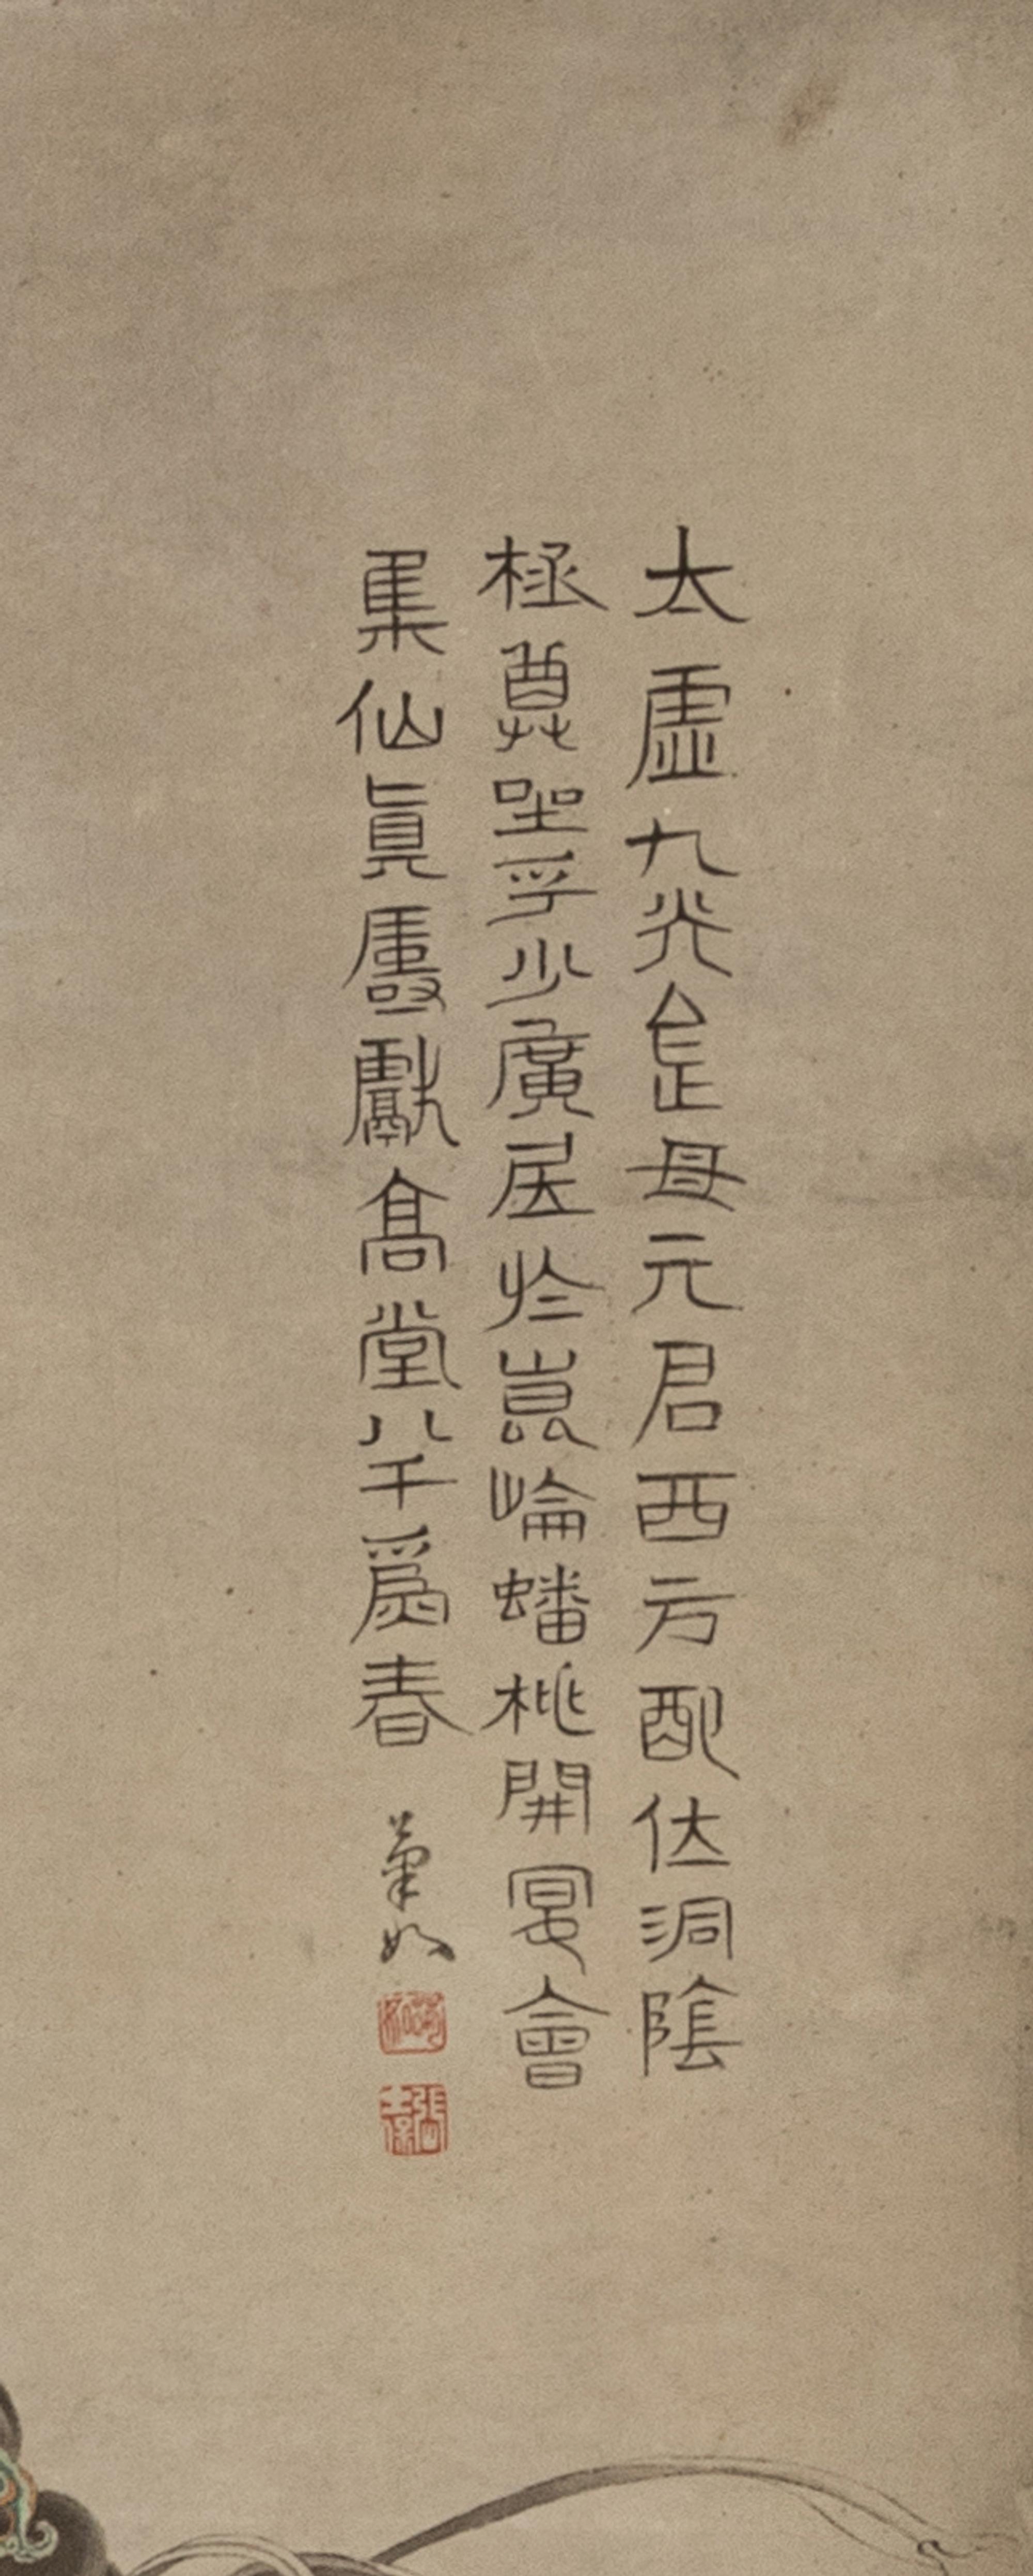 太虛九炁龜母元君西方配位洞陰
極尊理乎少廣居於崑崙蟠桃開宴會
集仙眞慶獻高堂八千爲春